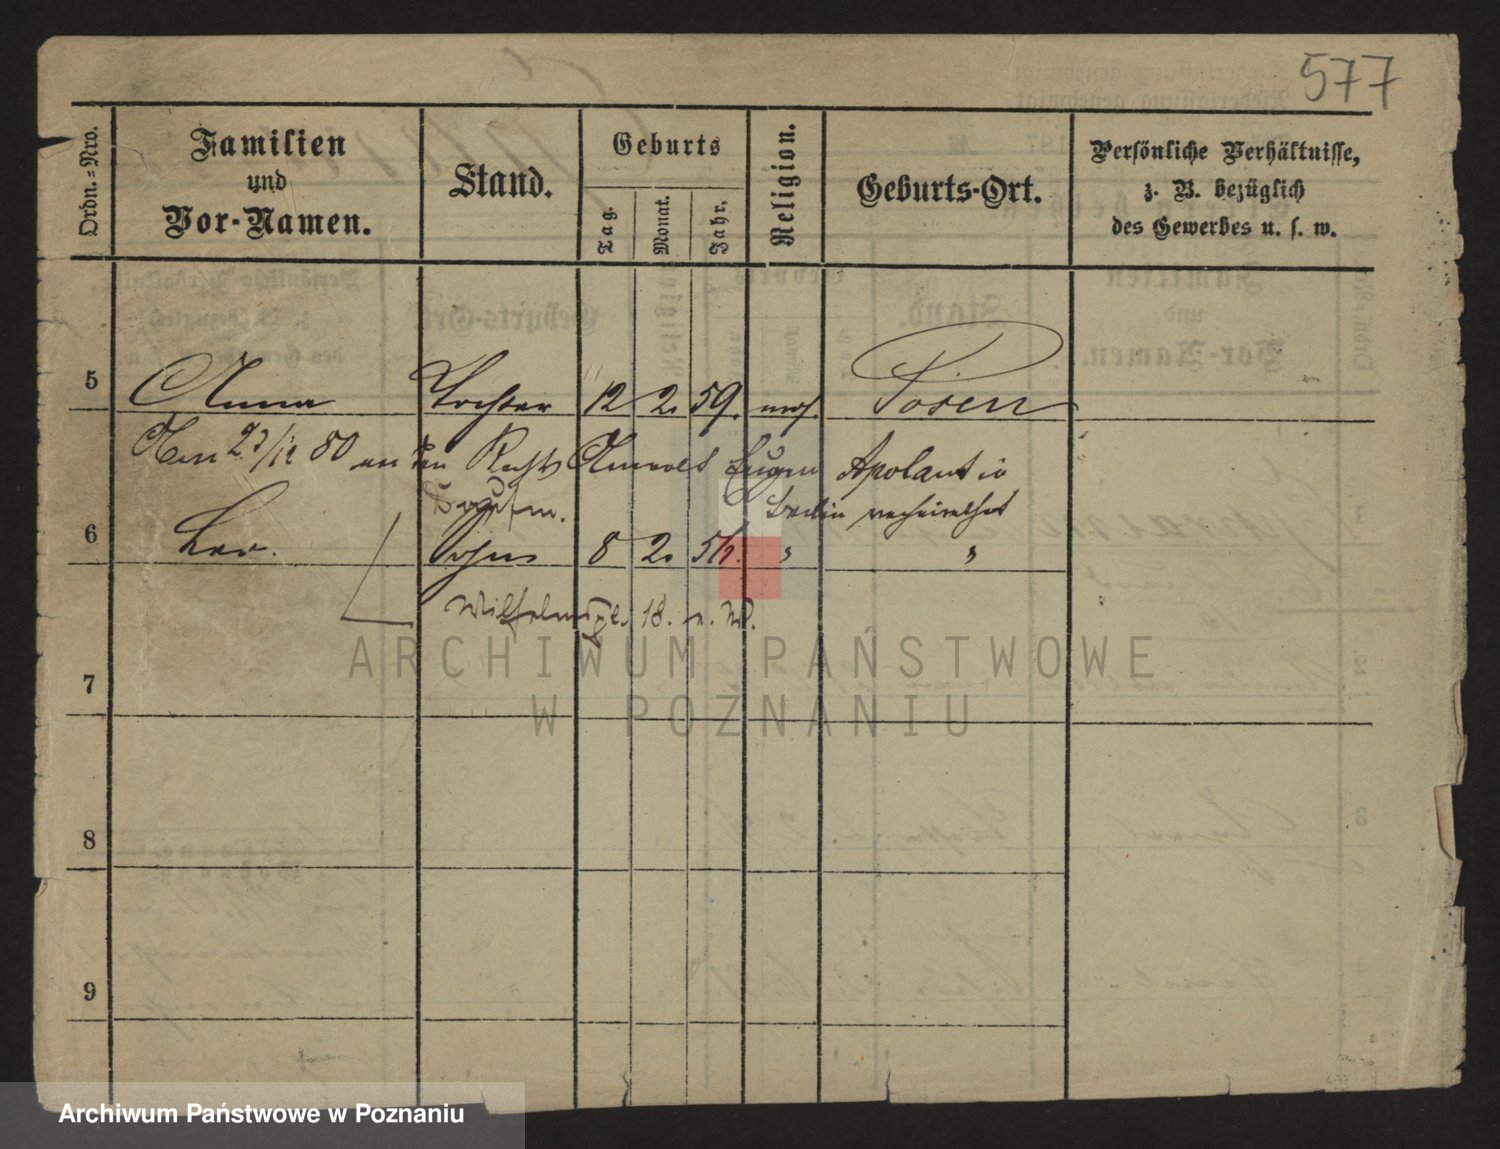 577
Ordn.-Nro.
Familien
und
Vor-Namen.
Stand.
Geburts
Tag.
Monat.
Jahr.
Religion.
Geburts-Ort.
Persönliche Verhältnisse,
z. B. bezüglich
des Gewerbes u. s. w.
5 Anna Tochter 12 2. 59. mos. Posen
80 an den Rechts Anwalt Eugen Apolant in
Berlin verheirathet
6 Leo. Sohn 8 2. " "
Wilhelmspl. 18. n. W.
7
ARCHIWUM PAŃSTWOWE
W POZNANIU
8
9
Archiwum Państwowe w Poznaniu